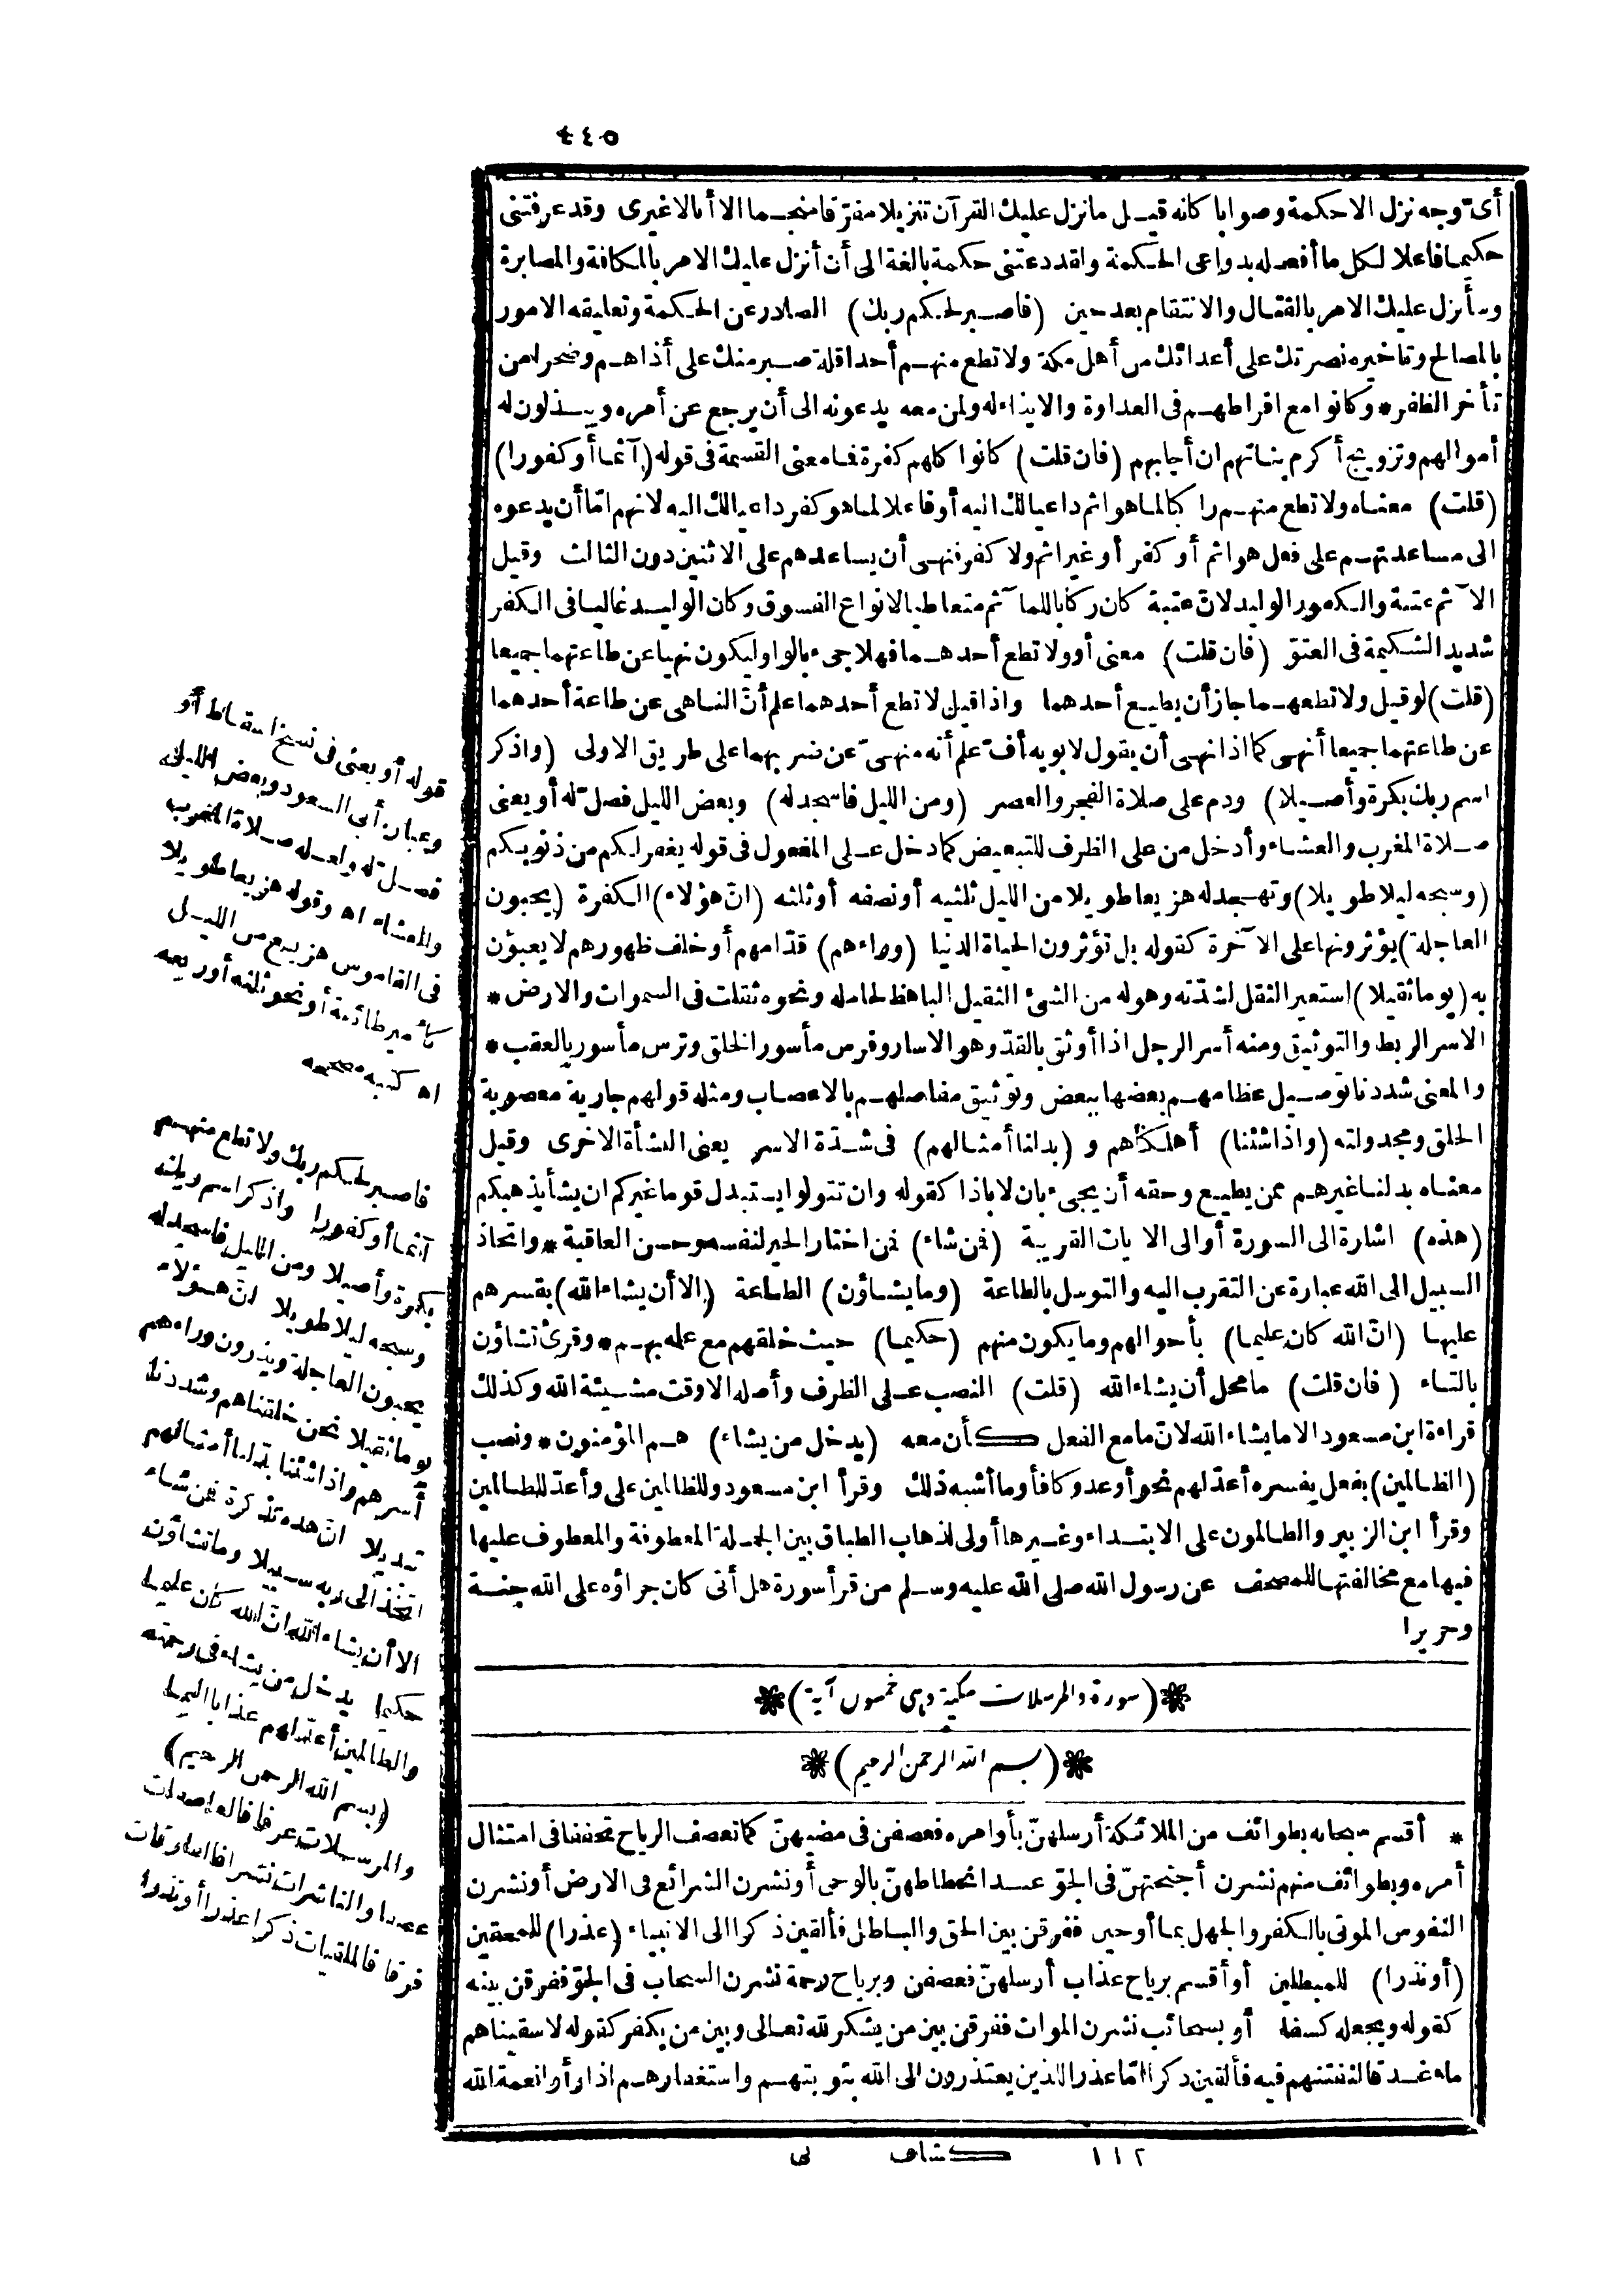 ٤٤٥
أىّ وجه نزل الا حكمة وصوابا كانه قيل ما نزل عليك القرآن تنزيلا مفرّقا منجما الا أنا لا غيرى وقد عرفتنى
حكيما فاعلا لكل ما أفعله بدواعى الحكمة ولقد دعتنى حكمة بالغة الى أن أنزل عليك الامر بالمكافة والمصابرة
وسأنزل عليك الامر بالقتال والانتقام بعد حين (فاصبر لحكم ربك) الصادر عن الحكمة وتعليقه الامور
بالمصالح وتاخيره نصرتك على أعدائك من أهل مكة ولا تطع منهم أحدا قلة صبر منك على أذاهم وضجرا من
تأخر الظفر * وكانوا مع افراطهم فى العداوة والايذاء له ولمن معه يدعونه الى أن يرجع عن أمره ويبذلون له
أموالهم وتزويج أكرم بناتهم ان أجابهم (فان قلت) كانوا كلهم كفرة فما معنى القسمة فى قوله (آثما أو كفورا)
(قلت) معناه ولا تطع منهم راكبا لما هو اثم داعيا لك اليه أو فاعلا لما هو كفر داعيا لك اليه لانهم امّا أن يدعوه
الى مساعدتهم على فعل هو اثم أو كفر أو غير اثم ولا كفر فنهى أن يساعدهم على الاثنين دون الثالث وقيل
الآثم عتبة والكفور الوليد لانّ عتبة كان ركابا للمآثم متعاطيا لانواع الفسوق وكان الوليد غاليا فى الكفر
شديد الشكيمة فى العتوّ (فان قلت) معنى أو ولا تطع أحدهما فهلا جىء بالواو ليكون نهيا عن طاعتهما جميعا
(قلت) لو قيل ولا تطعهما جاز أن يطيع أحدهما واذا قيل لا تطع أحدهما علم أنّ الناهى عن طاعة أحدهما
عن طاعتهما جميعا أنهى كما اذا نهى أن يقول لابويه أفّ علم أنه منهىّ عن ضربهما على طريق الاولى (واذكر
اسم ربك بكرة وأصيلا) ودم على صلاة الفجر والعصر (ومن الليل فاسجد له) وبعض الليل فصلّ له أو يعنى
صلاة المغرب والعشاء وأدخل من على الظرف للتبعيض كما دخل على المفعول فى قوله يغفر لكم من ذنوبكم
(وسبحه ليلا طويلا) وتهجد له هزيعا طويلا من الليل ثلثيه أو نصفه أو ثلثه (انّ هؤلاء) الكفرة (يحبون
العاجلة) يؤثرونها على الآخرة كقوله بل تؤثرون الحياة الدنيا (وراءهم) قدّامهم أو خلف ظهورهم لا يعبؤن
به (يوما ثقيلا) استعير الثقل لشدّته وهوله من الشئ الثقيل الباهظ لحامله ونحوه ثقلت فى السموات والارض *
الاسر الربط والتوثيق ومنه أسر الرجل اذا أوثق بالقدّ وهو الاسار وفرس مأسور الخلق وترس مأسور بالعقب *
والمعنى شددنا توصيل عظامهم بعضها ببعض وتوثيق مفاصلهم بالاعصاب ومثله قولهم جارية معصوبة
الخلق ومجدولته (واذا شئنا) أهلكناهم و (بدلنا أمثالهم) فى شدّة الاسر يعنى النشأة الاخرى وقيل
معناه بدلنا غيرهم ممن يطيع وحقه أن يجىء بان لا باذا كقوله وان تتولوا يستبدل قوما غيركم ان يشأ يذهبكم
(هذه) اشارة الى السورة أو الى الآيات القريبة (فمن شاء) فمن اختار الخير لنفسه وحسن العاقبة * واتخاذ
السبيل الى الله عبارة عن التقرب اليه والتوسل بالطاعة (وما يشاؤن) الطاعة (الا أن يشاء الله) بقسرهم
عليها (انّ الله كان عليما) بأحوالهم وما يكون منهم (حكيما) حيث خلقهم مع علمه بهم * وقرئ تشاؤن
بالتاء (فان قلت) ما محل أن يشاء الله (قلت) النصب على الظرف وأصله الا وقت مشيئة الله وكذلك
قراءة ابن مسعود الا ما يشاء الله لانّ ما مع الفعل كأن معه (يدخل من يشاء) هم المؤمنون * ونصب
(الظالمين) بفعل يفسره أعدّ لهم نحو أوعد وكافأ وما أشبه ذلك وقرأ ابن مسعود وللظالمين على وأعدّ للظالمين
وقرأ ابن الزبير والظالمون على الابتداء وغيرها أولى لذهاب الطباق بين الجملة المعطوفة والمعطوف عليها
فيها مع مخالفتها للمصحف عن رسول الله صلى الله عليه وسلم من قرأ سورة هل أتى كان جزاؤه على الله جنة
وحريرا
❋(سورة والمرسلات مكية وهى خمسون آية)❋
❋(بسم الله الرحمن الرحيم)❋
* أقسم سبحانه بطوائف من الملائكة أرسلهنّ بأوامره فعصفن فى مضيهنّ كما تعصف الرياح تخففا فى امتثال
أمره وبطوائف منهم نشرن أجنحتهنّ فى الجوّ عند انحطاطهنّ بالوحى أو نشرن الشرائع فى الارض أو نشرن
النفوس الموتى بالكفر والجهل بما أوحين ففرقن بين الحق والباطل فألقين ذكرا الى الانبياء (عذرا) للمحقين
(أو نذرا) للمبطلين أو أقسم برياح عذاب أرسلهنّ فعصفن وبرياح رحمة نشرن السحاب فى الجوّ ففرقن بينه
كقوله ويجعله كسفا أو بسحائب نشرن الموات ففرقن بين من يشكر لله تعالى وبين من يكفر كقوله لاسقيناهم
ماء غدقا لنفتنهم فيه فألقين ذكرا امّا عذرا للذين يعتذرون الى الله بتوبتهم واستغفارهم اذا رأوا نعمة الله
قوله أو يعنى فى نسخ اسقاط أو
وعبارة أبى السعود وبعض الليل
فصلّ له ولعله صلاة المغرب
والعشاء اه وقوله هزيعا طويلا
فى القاموس هزيع من الليل
كأمير طائفة أو نحو ثلثه أو ربعه
اه كتبه مصححه
فاصبر لحكم ربك ولا تطع منهم
آثما أو كفورا واذكر اسم ربك
بكرة وأصيلا ومن الليل فاسجد له
وسبحه ليلا طويلا انّ هؤلاء
يحبون العاجلة ويذرون وراءهم
يوما ثقيلا نحن خلقناهم وشددنا
أسرهم واذا شئنا بدّلنا أمثالهم
تبديلا انّ هذه تذكرة فمن شاء
اتخذ الى ربه سبيلا وما تشاؤن
الا أن يشاء الله انّ الله كان عليما
حكيما يدخل من يشاء فى رحمته
والظالمين أعدّ لهم عذابا أليما
(بسم الله الرحمن الرحيم)
والمرسلات عرفا فالعاصفات
عصفا والناشرات نشرا فالفارقات
فرقا فالملقيات ذكرا عذرا أو نذرا
١١٢ كشاف نى